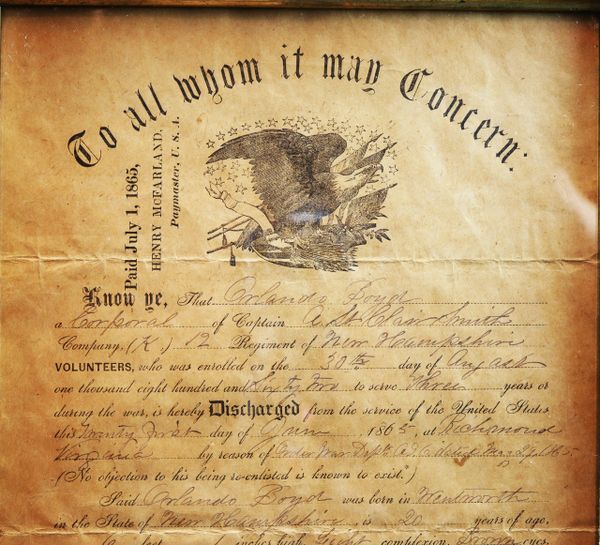 To all whom it may Concern:
Paid July 1, 1865,
HENRY McFARLAND,
Paymaster, U. S. A.
Know ye, That Orlando Boyd
a Corporal of Captain A St Clair Smith
Company, (K,) 12 Regiment of New Hampshire
VOLUNTEERS, who was enrolled on the 30th day of August
one thousand eight hundred and Sixty Two to serve Three years or
during the war, is hereby Discharged from the service of the United States
this Twenty First day of June 1865, at Richmond
Virginia by reason of
(No objection to his being re-enlisted is known to exist.)
Said Orlando Boyd was born in Wentworth
in the State of New Hampshire, is 20 years of age,
feet inches high, Light complexion, Brown eyes,